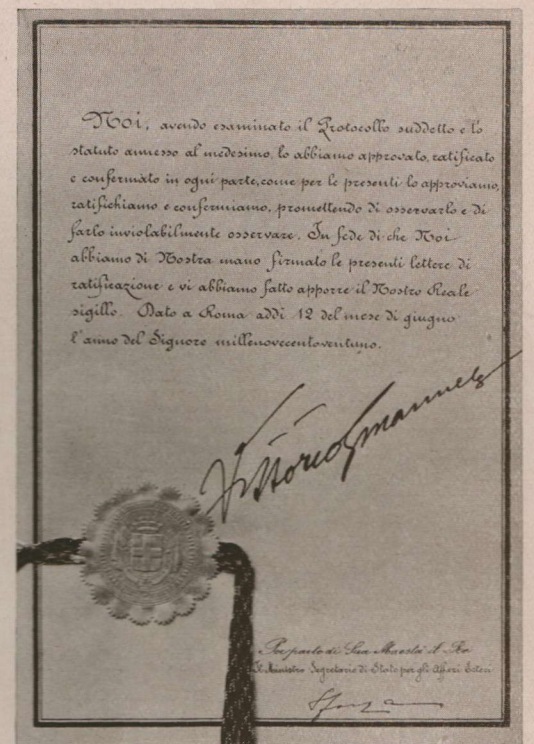 Noi, avendo esaminato il Protocollo suddetto e lo
statuto annesso al medesimo, lo abbiamo approvato, ratificato
e confermato in ogni parte, come per le presenti lo approviamo,
ratifichiamo e confermiamo, promettendo di osservarlo e di
farlo inviolabilmente osservare. In fede di che Noi
abbiamo di Nostra mano firmato le presenti lettere di
ratificazione e vi abbiamo fatto apporre il Nostro Reale
sigillo. Dato a Roma addì 12 del mese di giugno
l'anno del Signore millenovecentoventuno.
Vittorio Emanuele
Per parte di Sua Maestà il Re
Il Ministro Segretario di Stato per gli Affari Esteri
Sforza